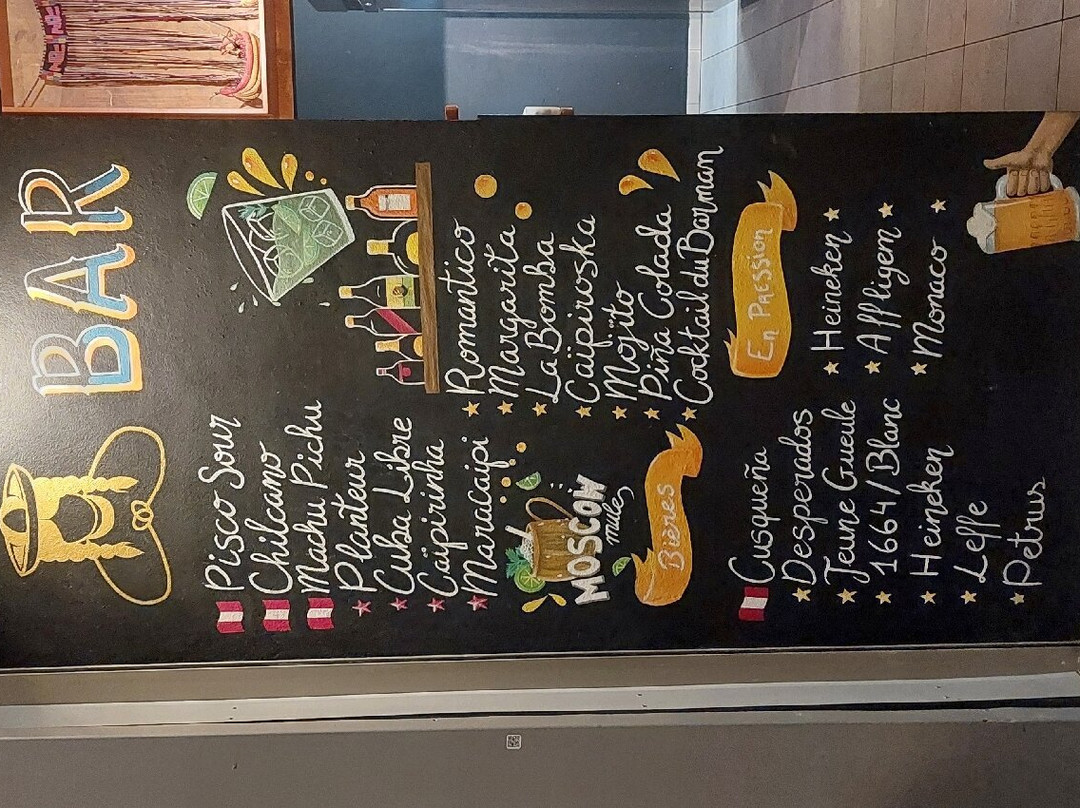 BAR
Pisco Sour
Chilcano
Machu Pichu
Planteur
Cuba Libre
Caïpirinha
Maracaipi
MOSCOW
mule
Romantico
Margarita
La Bomba
Caïpiroska
Mojito
Piña Colada
Cocktail du Barman
Bières
Cusqueña
Desperados
Jeune Gueule
1664/Blanc
Heineken
Leffe
Petrus
En Pression
Heineken
Affligem
Monaco